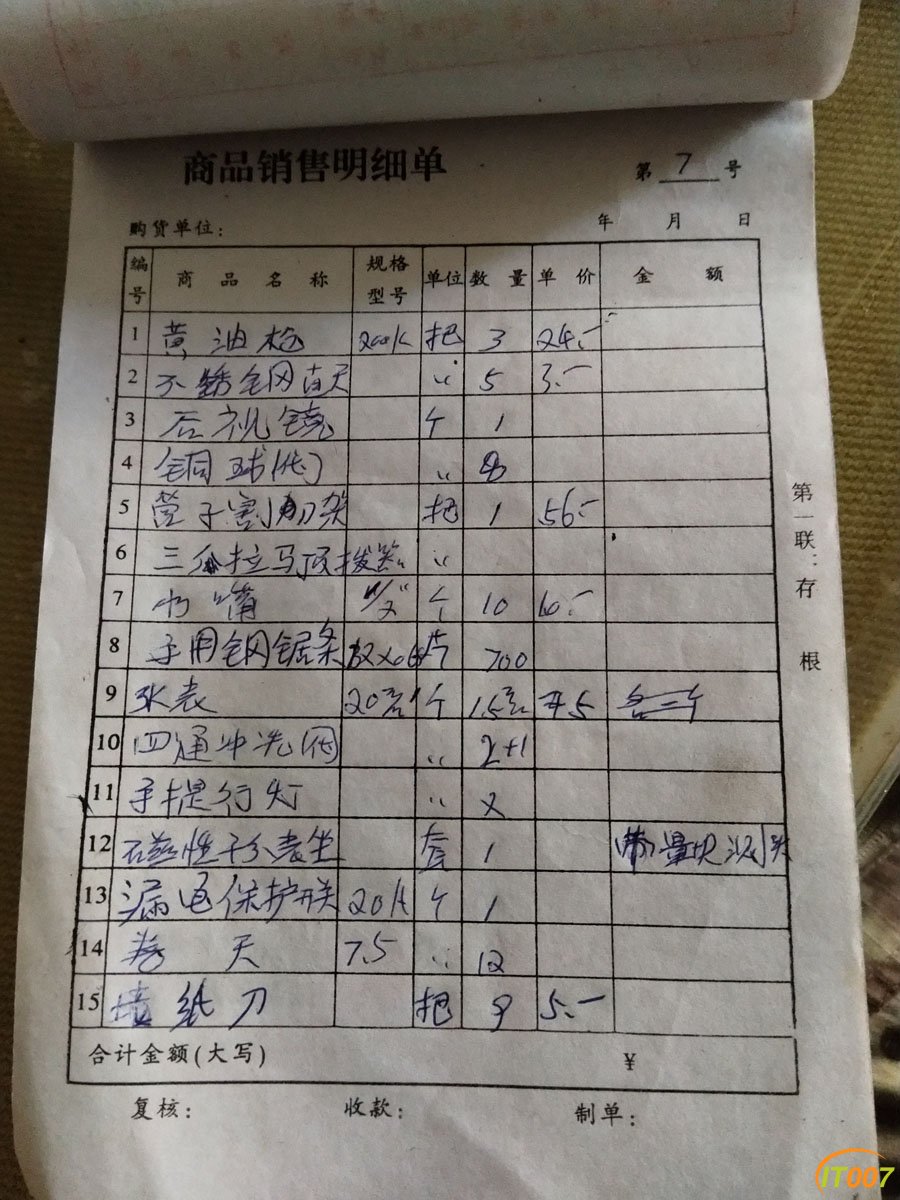 商品销售明细单
第 7 号
购货单位: 年 月 日
编号 商品名称 规格型号 单位 数量 单价 金额
1 黄油枪 200k 把 3 24.-
2 不锈钢 〃 5 3.-
3 后视镜 个 1
4 铜球 〃 8
5 管子割刀架 把 1 56.-
6 三分拉马 〃
7 嘴 1/2" 个 10 10.-
8 手用钢锯条 片 700
9 水表 20 个 15
10 四通冲洗阀 〃 2+1
11 手提行灯 〃 2
12 磁性千分表坐 套 1 带量块测头
13 漏电保护开关 20A 个 1
14 7.5 〃 12
15 墙纸刀 把 9 5.-
合计金额(大写) ¥
复核: 收款: 制单:
第一联:存根
IT007